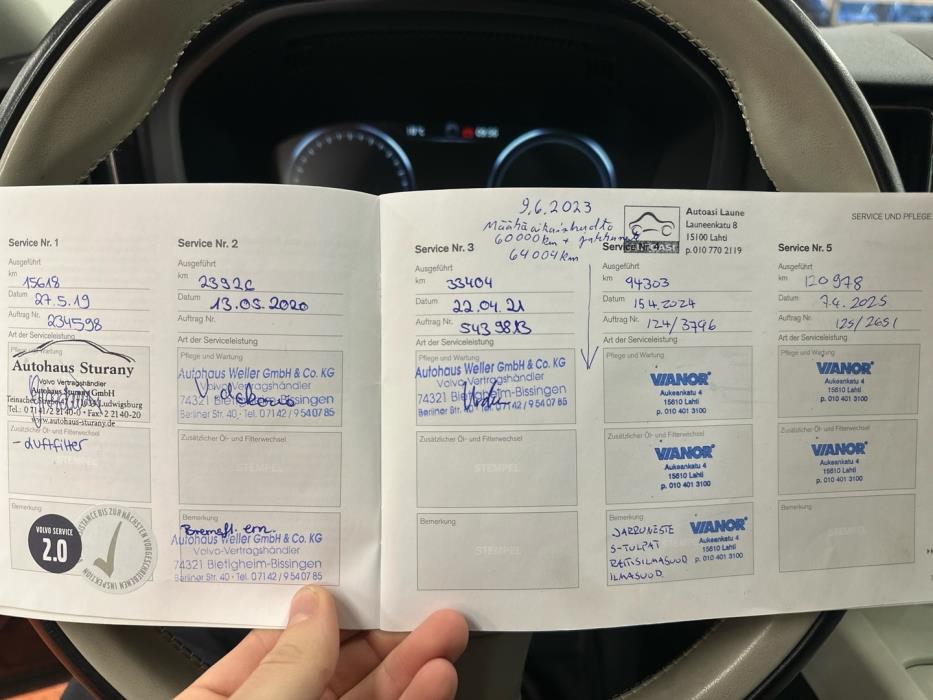 Service Nr. 1
Ausgeführt
km 15618
Datum 27.5.19
Auftrag Nr. 234598
Art der Serviceleistung
Pflege und Wartung
Autohaus Sturany
Volvo Vertragshändler
Autohaus Sturany GmbH
Ludwigsburg
www.autohaus-sturany.de
Zusätzlicher Öl- und Filterwechsel
- Luftfilter
STEMPEL
Bemerkung
VOLVO SERVICE
2.0
DISTANCE BIS ZUR NÄCHSTEN VORGESCHRIEBENEN INSPEKTION
Service Nr. 2
Ausgeführt
km
Datum 13.05.2020
Auftrag Nr.
Art der Serviceleistung
Pflege und Wartung
Autohaus Weller GmbH & Co. KG
Volvo-Vertragshändler
74321 Bietigheim-Bissingen
Berliner Str. 40 · Tel. 07142 / 9 540785
Zusätzlicher Öl- und Filterwechsel
STEMPEL
Bemerkung
Bremsfl. ern.
Autohaus Weller GmbH & Co. KG
Volvo-Vertragshändler
74321 Bietigheim-Bissingen
Berliner Str. 40 · Tel. 07142 / 9 540785
9.6.2023
Määräaikaishuolto
60000km +
64004km
Autoasi Laune
Launeenkatu 8
15100 Lahti
p.010 770 2119
SERVICE UND PFLEGE
Service Nr. 3
Ausgeführt
km 33404
Datum 22.04.21
Auftrag Nr. 5439813
Art der Serviceleistung
Pflege und Wartung
Autohaus Weller GmbH & Co. KG
Volvo-Vertragshändler
74321 Bietigheim-Bissingen
Berliner Str. 40 · Tel. 07142 / 9 540785
Zusätzlicher Öl- und Filterwechsel
STEMPEL
Bemerkung
STEMPEL
Service Nr. 4
Ausgeführt
km 94303
Datum 15.4.2024
Auftrag Nr. 124/3796
Art der Serviceleistung
Pflege und Wartung
VIANOR
Aukeankatu 4
15610 Lahti
p. 010 401 3100
Zusätzlicher Öl- und Filterwechsel
VIANOR
Aukeankatu 4
15610 Lahti
p. 010 401 3100
Bemerkung
JARRUNESTE
S-TULPAT
RAITISILMASUOD
ILMASUOD.
VIANOR
Aukeankatu 4
15610 Lahti
p. 010 401 3100
Service Nr. 5
Ausgeführt
km 120978
Datum 7.4.2025
Auftrag Nr. 125/2651
Art der Serviceleistung
Pflege und Wartung
VIANOR
Aukeankatu 4
15610 Lahti
p. 010 401 3100
Zusätzlicher Öl- und Filterwechsel
VIANOR
Aukeankatu 4
15610 Lahti
p. 010 401 3100
Bemerkung
STEMPEL